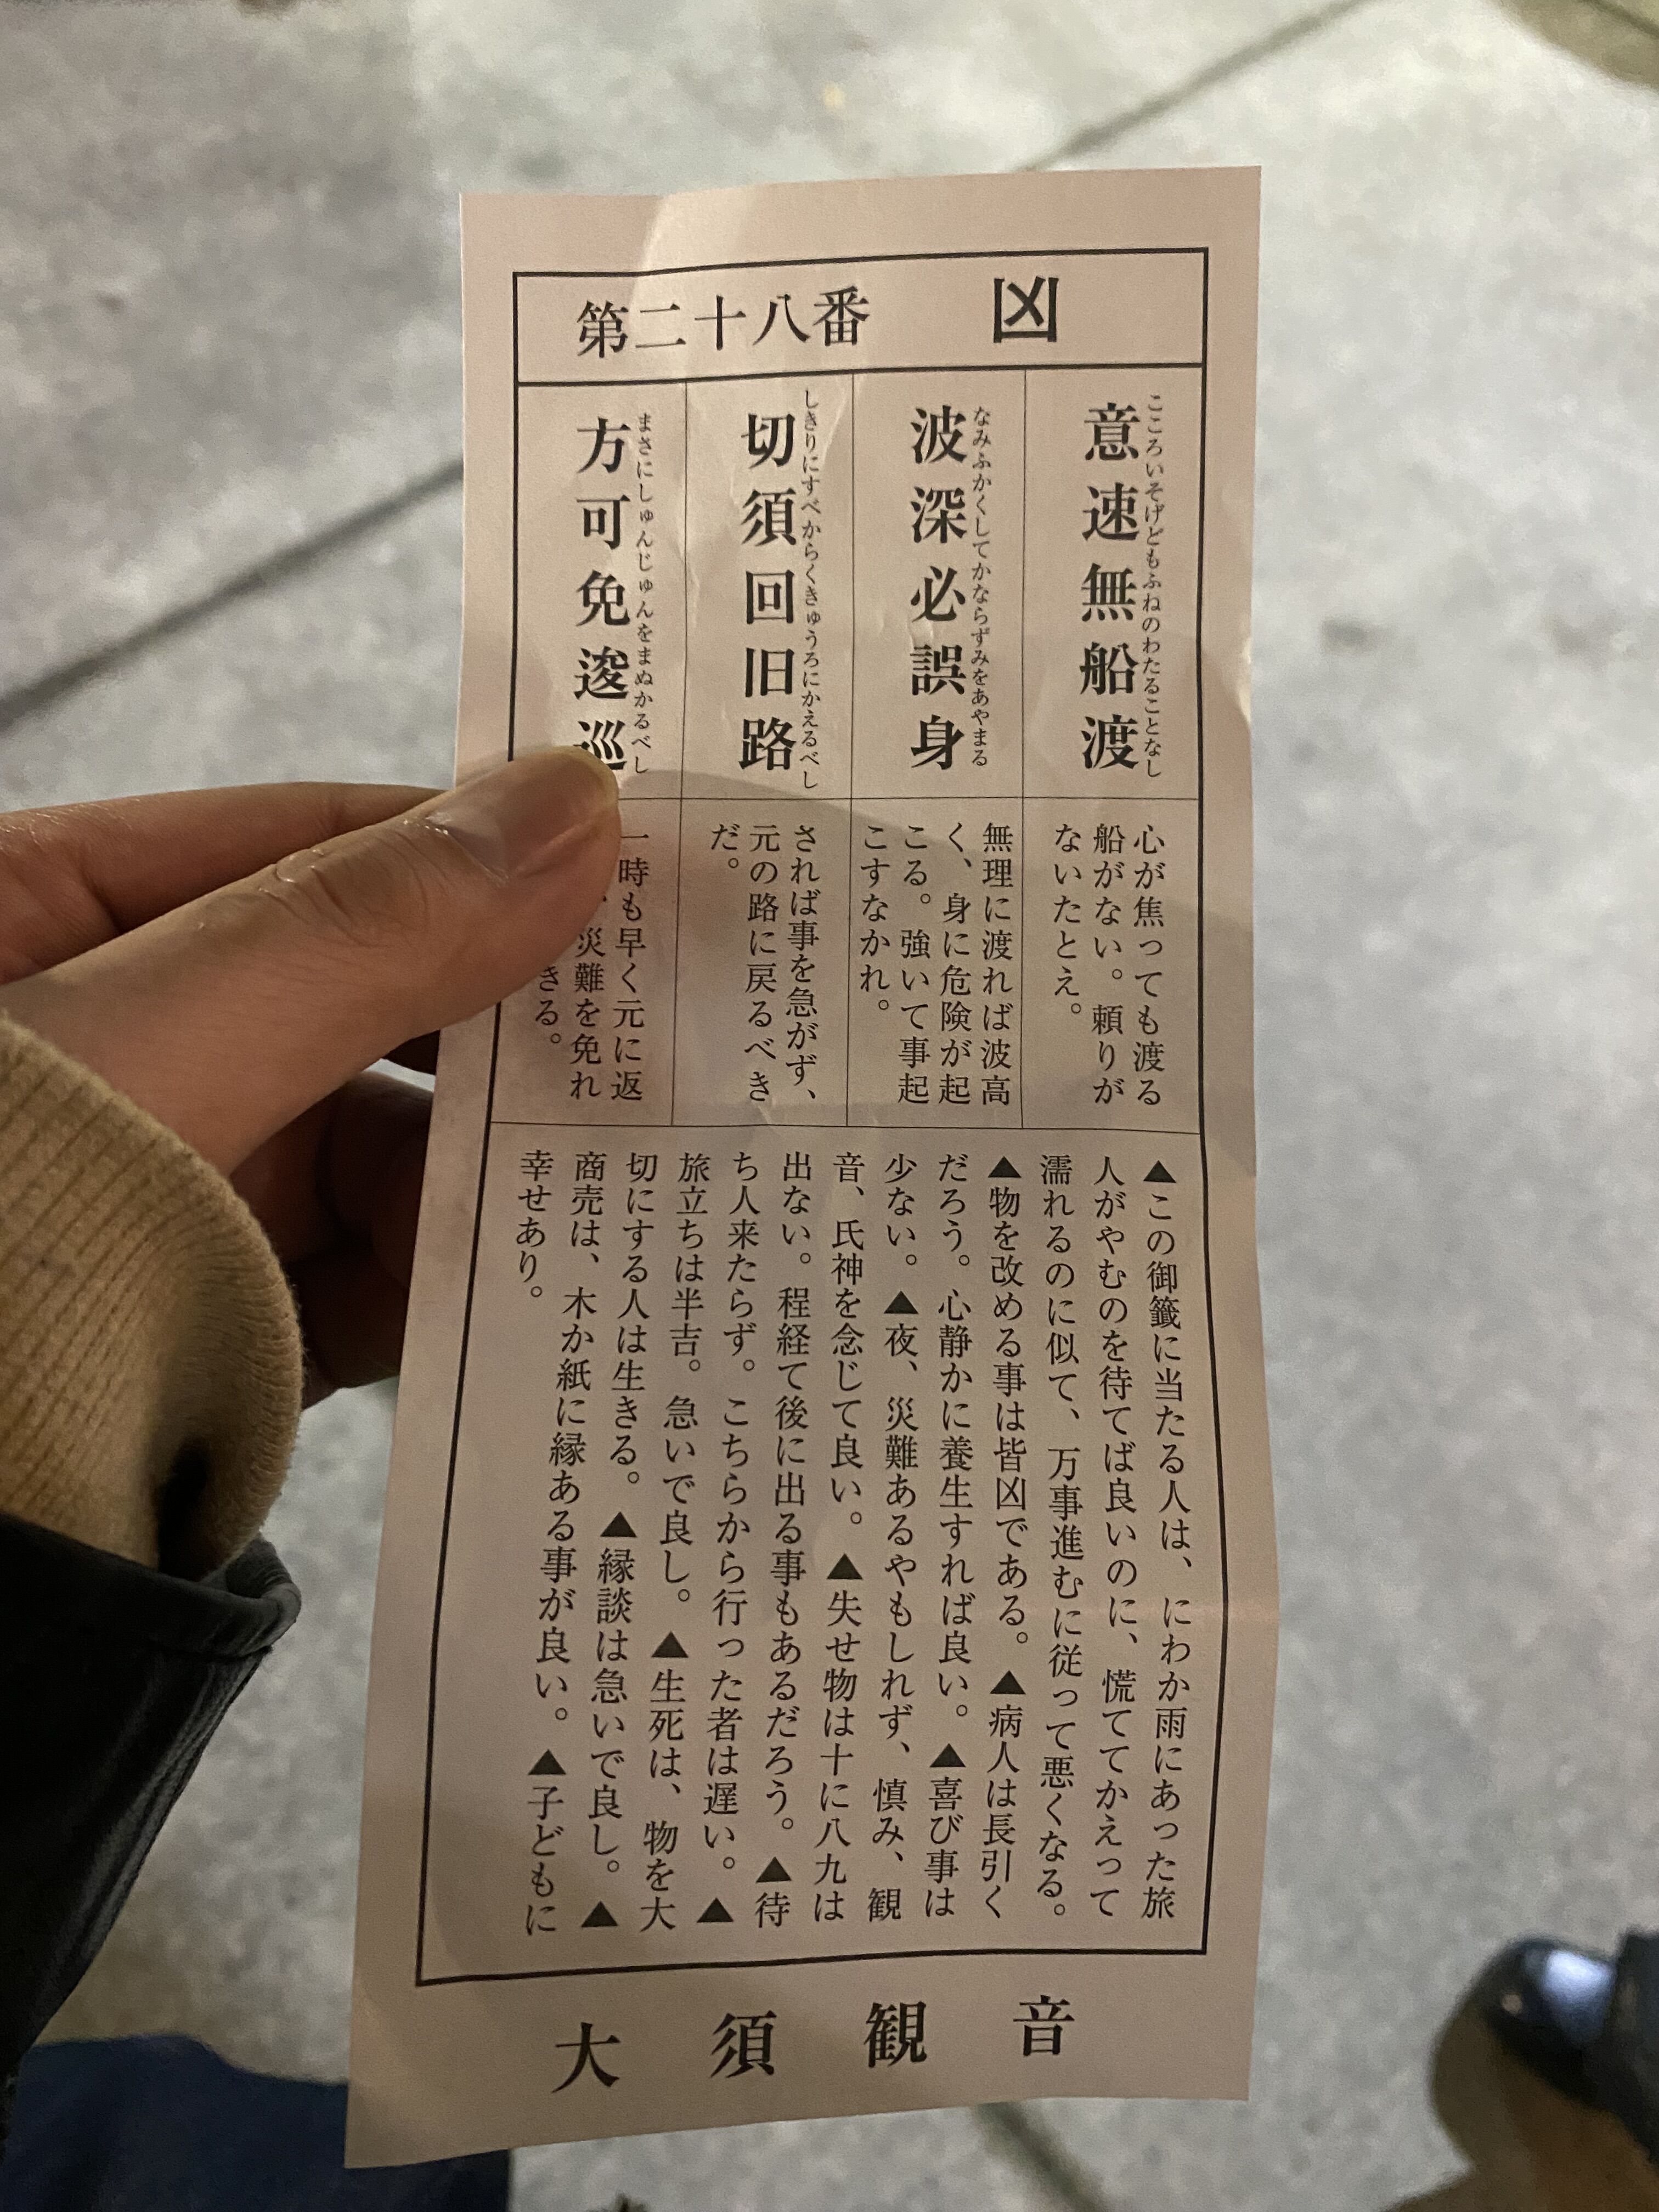 第二十八番 凶
こころいそげどもふねのわたることなし
意速無船渡
なみふかくしてかならずみをあやまる
波深必誤身
しきりにすべからくきゅうろにかえるべし
切須回旧路
まさにしゅんじゅんをまぬかるべし
方可免逡巡
心が焦っても渡る
船がない。頼りが
ないたとえ。
無理に渡れば波高
く、身に危険が起
こる。強いて事起
こすなかれ。
されば事を急がず、
元の路に戻るべき
だ。
一時も早く元に返
災難を免れ
きる。
▲この御籤に当たる人は、にわか雨にあった旅
人がやむのを待てば良いのに、慌ててかえって
濡れるのに似て、万事進むに従って悪くなる。
▲物を改める事は皆凶である。▲病人は長引く
だろう。心静かに養生すれば良い。▲喜び事は
少ない。▲夜、災難あるやもしれず、慎み、観
音、氏神を念じて良い。▲失せ物は十に八九は
出ない。程経て後に出る事もあるだろう。▲待
ち人来たらず。こちらから行った者は遅い。▲
旅立ちは半吉。急いで良し。▲生死は、物を大
切にする人は生きる。▲縁談は急いで良し。▲
商売は、木か紙に縁ある事が良い。▲子どもに
幸せあり。
大須観音